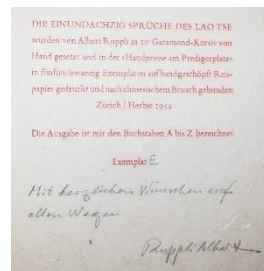 DIE EINUNDACHZIG SPRÜCHE DES LAO TSE
wurden von Albert Ruppli in 20' Garamond-Kursiv von
Hand gesetzt und in der «Handpresse am Predigerplatz»
in fünfundzwanzig Exemplaren auf handgeschöpft Reis-
papier gedruckt und nach chinesischem Brauch gebunden
Zürich / Herbst 1954
Die Ausgabe ist mit den Buchstaben A bis Z bezeichnet
Exemplar E
Mit herzlichen Wünschen auf
allen Wegen
Ruppli Albert